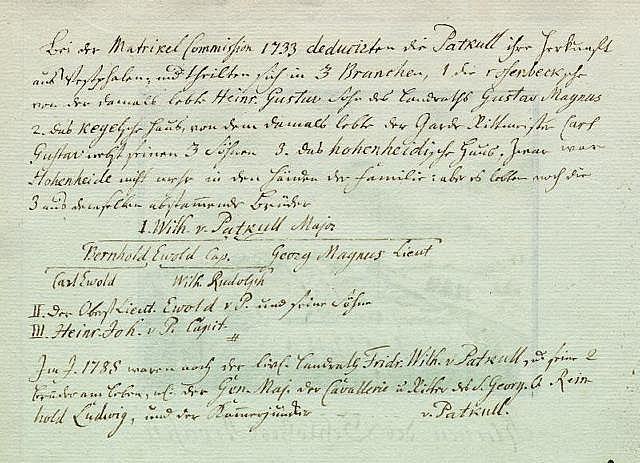 Bei der Matrikel Commission 1733 deducirten die Patkull ihre Herkunft
aus Westphalen, und theilten sich in 3 Branchen, 1 die rosenbecksche
von der damals lebte Heinr. Gustav Sohn des Landraths Gustav Magnus
2. das kegelsche Haus, von dem damals lebte der Garde Rittmeister Carl
Gustav nebst seinen 3 Söhnen 3. das hohenheidische Haus. Zwar war
Hohenheide nicht mehr in den Händen der Familie: aber es lebten noch die
3 aus demselben abstammende Brüder
I. Wilh. v. Patkull Major
Bernhold Ewold Cap. Georg Magnus Lieut
Carl Ewold Wilh. Rudolph
II. Der Obrist Lieut. Ewold v P. und seine Söhne
III. Heinr. Joh. v P. Capit.
Im J. 1788 waren noch der livl. Landrath Fridr. Wilh. v. Patkull, u. seine 2
Brüder am Leben, nl. der Gen. Maj. der Cavallerie u. Ritter des S. Georg. O. Rein
hold Ludwig, und der Kamerjunker v. Patkull.